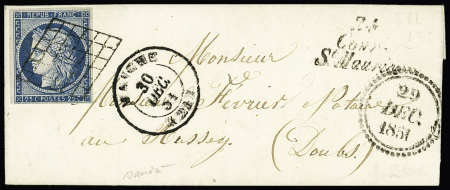 REPUB. FRANC.
25 C. POSTES 25 C.
MAICHE
30
DEC.
51
24
St Maurice
29
DEC.
1851
Monsieur
Février Notaire
au Russey (Doubs)